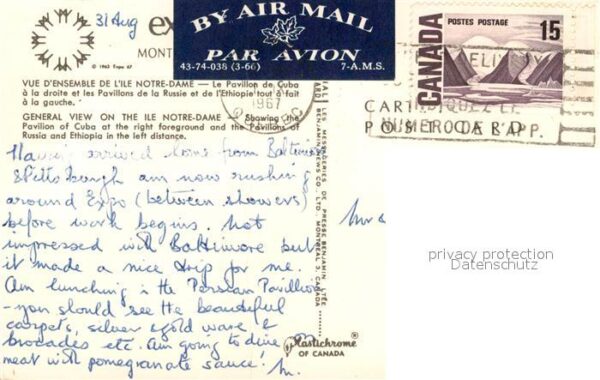 31 Aug
ex
© 1963 Expo 67
MONT
BY AIR MAIL
PAR AVION
43-74-038 (3-66) 7-A.M.S.
CANADA
POSTES POSTAGE
15
1967
CAR
INDIQUEZ LE
NUMERO DE
APP.
POST CARD
VUE D'ENSEMBLE DE L'ILE NOTRE-DAME — Le Pavillon de Cuba
à la droite et les Pavillons de la Russie et de l'Ethiopie tout à fait
à la gauche.
GENERAL VIEW ON THE ILE NOTRE-DAME — Showing the
Pavilion of Cuba at the right foreground and the Pavilions of
Russia and Ethiopia in the left distance.
Having arrived home from Baltimore
& Pittsburgh am now rushing
around Expo (between showers)
before work begins. Not
impressed with Baltimore but
it made a nice trip for me.
Am lunching in the Persian Pavillion
- you should see the beautiful
carpets, silver & gold ware &
brocades etc. Am going to dine
meat with pomegranate sauce! M.
Mr &
LES MESSAGERIES DE PRESSE BENJAMIN LTÉE
BENJAMIN NEWS CO. LTD., MONTREAL 3, CANADA
Plastichrome®
OF CANADA
privacy protection
Datenschutz